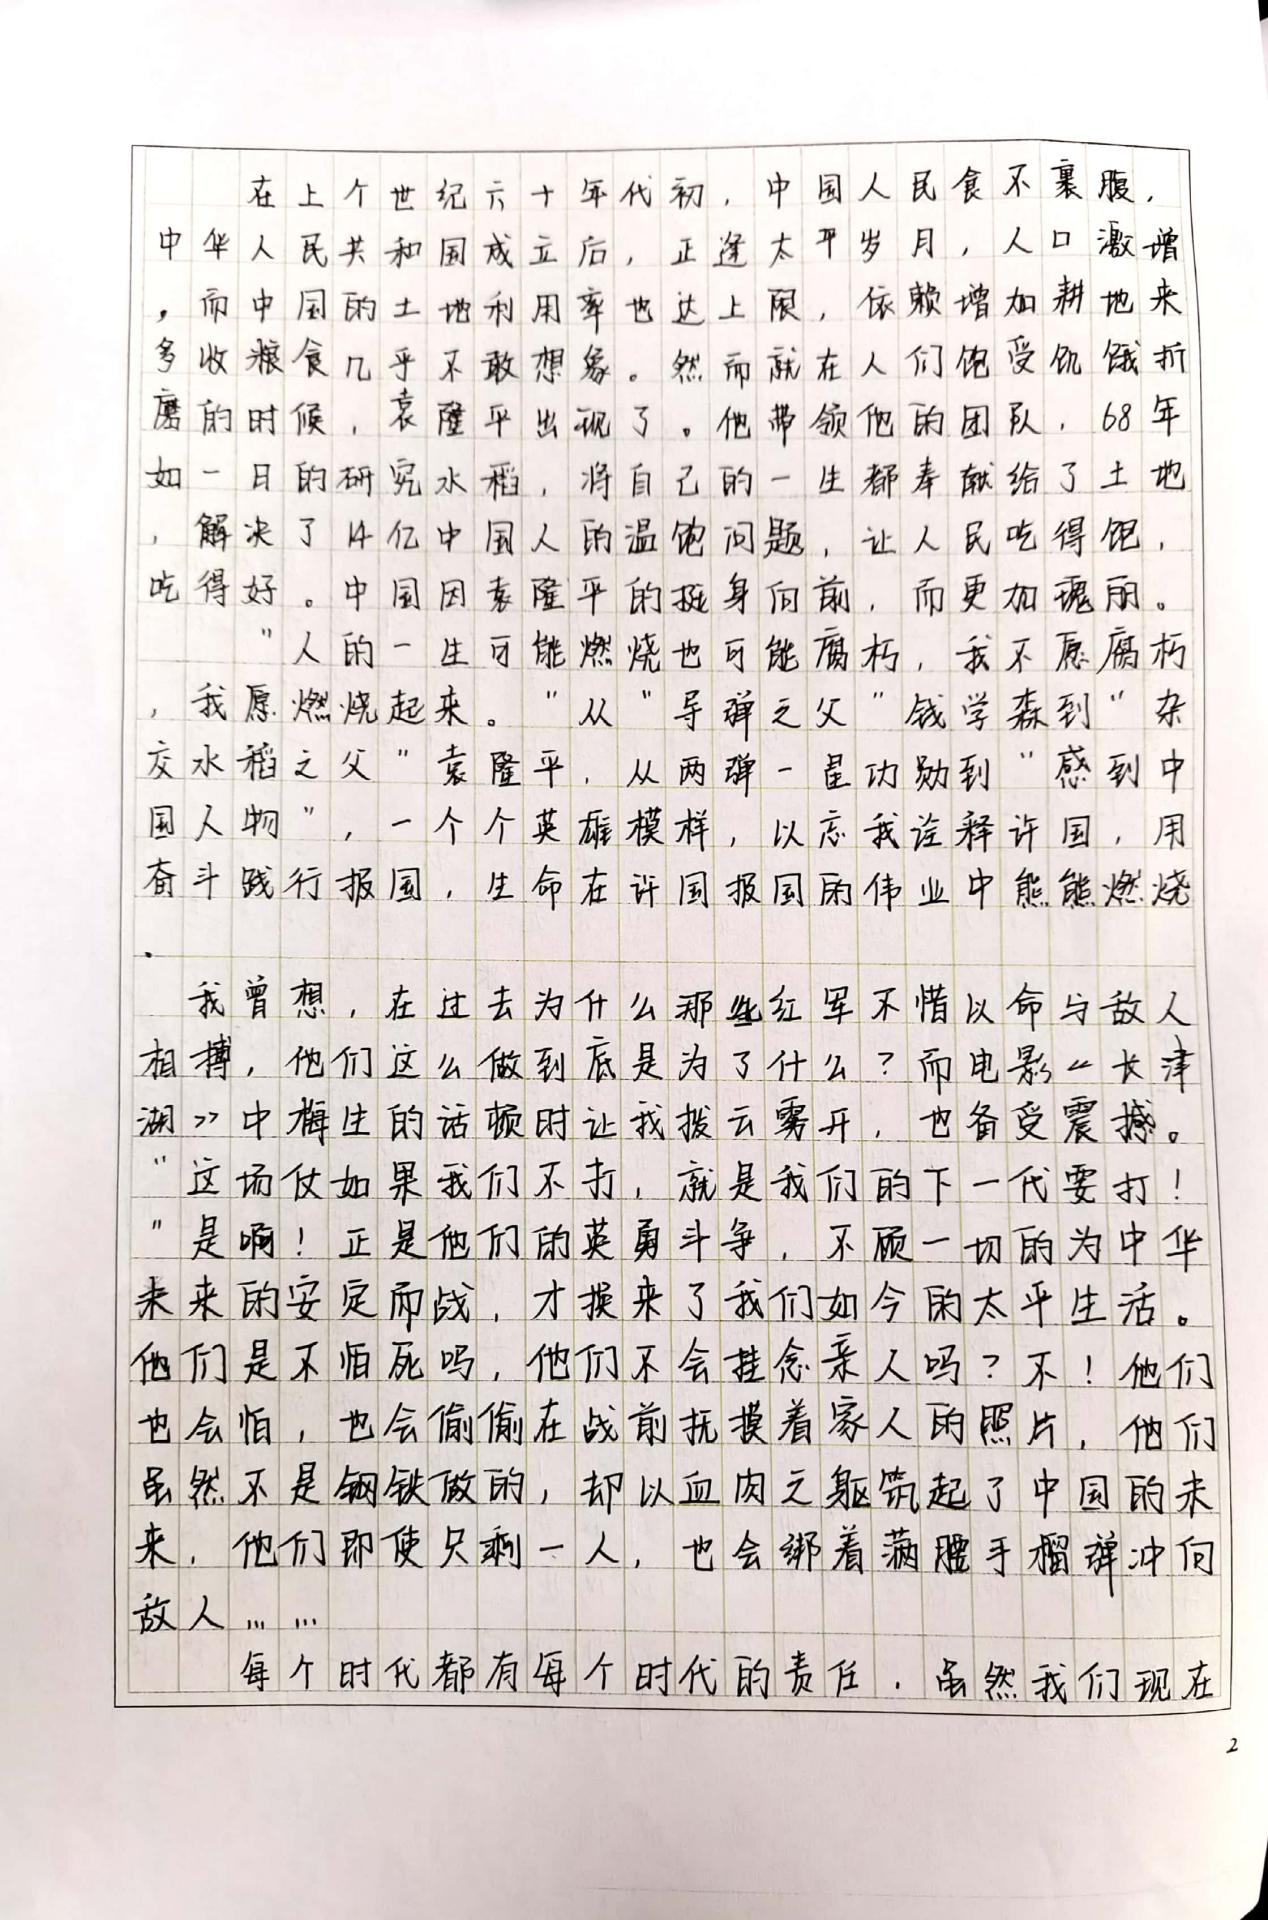 在上个世纪六十年代初，中国人民食不裹腹，
中华人民共和国成立后，正逢太平岁月，人口激增
，而中国的土地利用率也达上限，依赖增加耕地来
多收粮食几乎不敢想象。然而就在人们饱受饥饿折
磨的时候，袁隆平出现了。他带领他的团队，68年
如一日的研究水稻，将自己的一生都奉献给了土地
，解决了14亿中国人的温饱问题，让人民吃得饱，
吃得好。中国因袁隆平的挺身向前，而更加瑰丽。
"人的一生可能燃烧也可能腐朽，我不愿腐朽
，我愿燃烧起来。"从"导弹之父"钱学森到"杂
交水稻之父"袁隆平，从两弹一星功勋到"感到中
国人物"，一个个英雄模样，以忘我诠释许国，用
奋斗践行报国，生命在许国报国的伟业中熊熊燃烧
.
我曾想，在过去为什么那些红军不惜以命与敌人
相搏，他们这么做到底是为了什么？而电影《长津
湖》中梅生的话顿时让我拨云雾开，也备受震撼。
"这场仗如果我们不打，就是我们的下一代要打！
"是啊！正是他们的英勇斗争，不顾一切的为中华
未来的安定而战，才换来了我们如今的太平生活。
他们是不怕死吗，他们不会挂念亲人吗？不！他们
也会怕，也会偷偷在战前抚摸着家人的照片，他们
虽然不是钢铁做的，却以血肉之躯筑起了中国的未
来，他们即使只剩一人，也会绑着满腰手榴弹冲向
敌人……
每个时代都有每个时代的责任，虽然我们现在
2